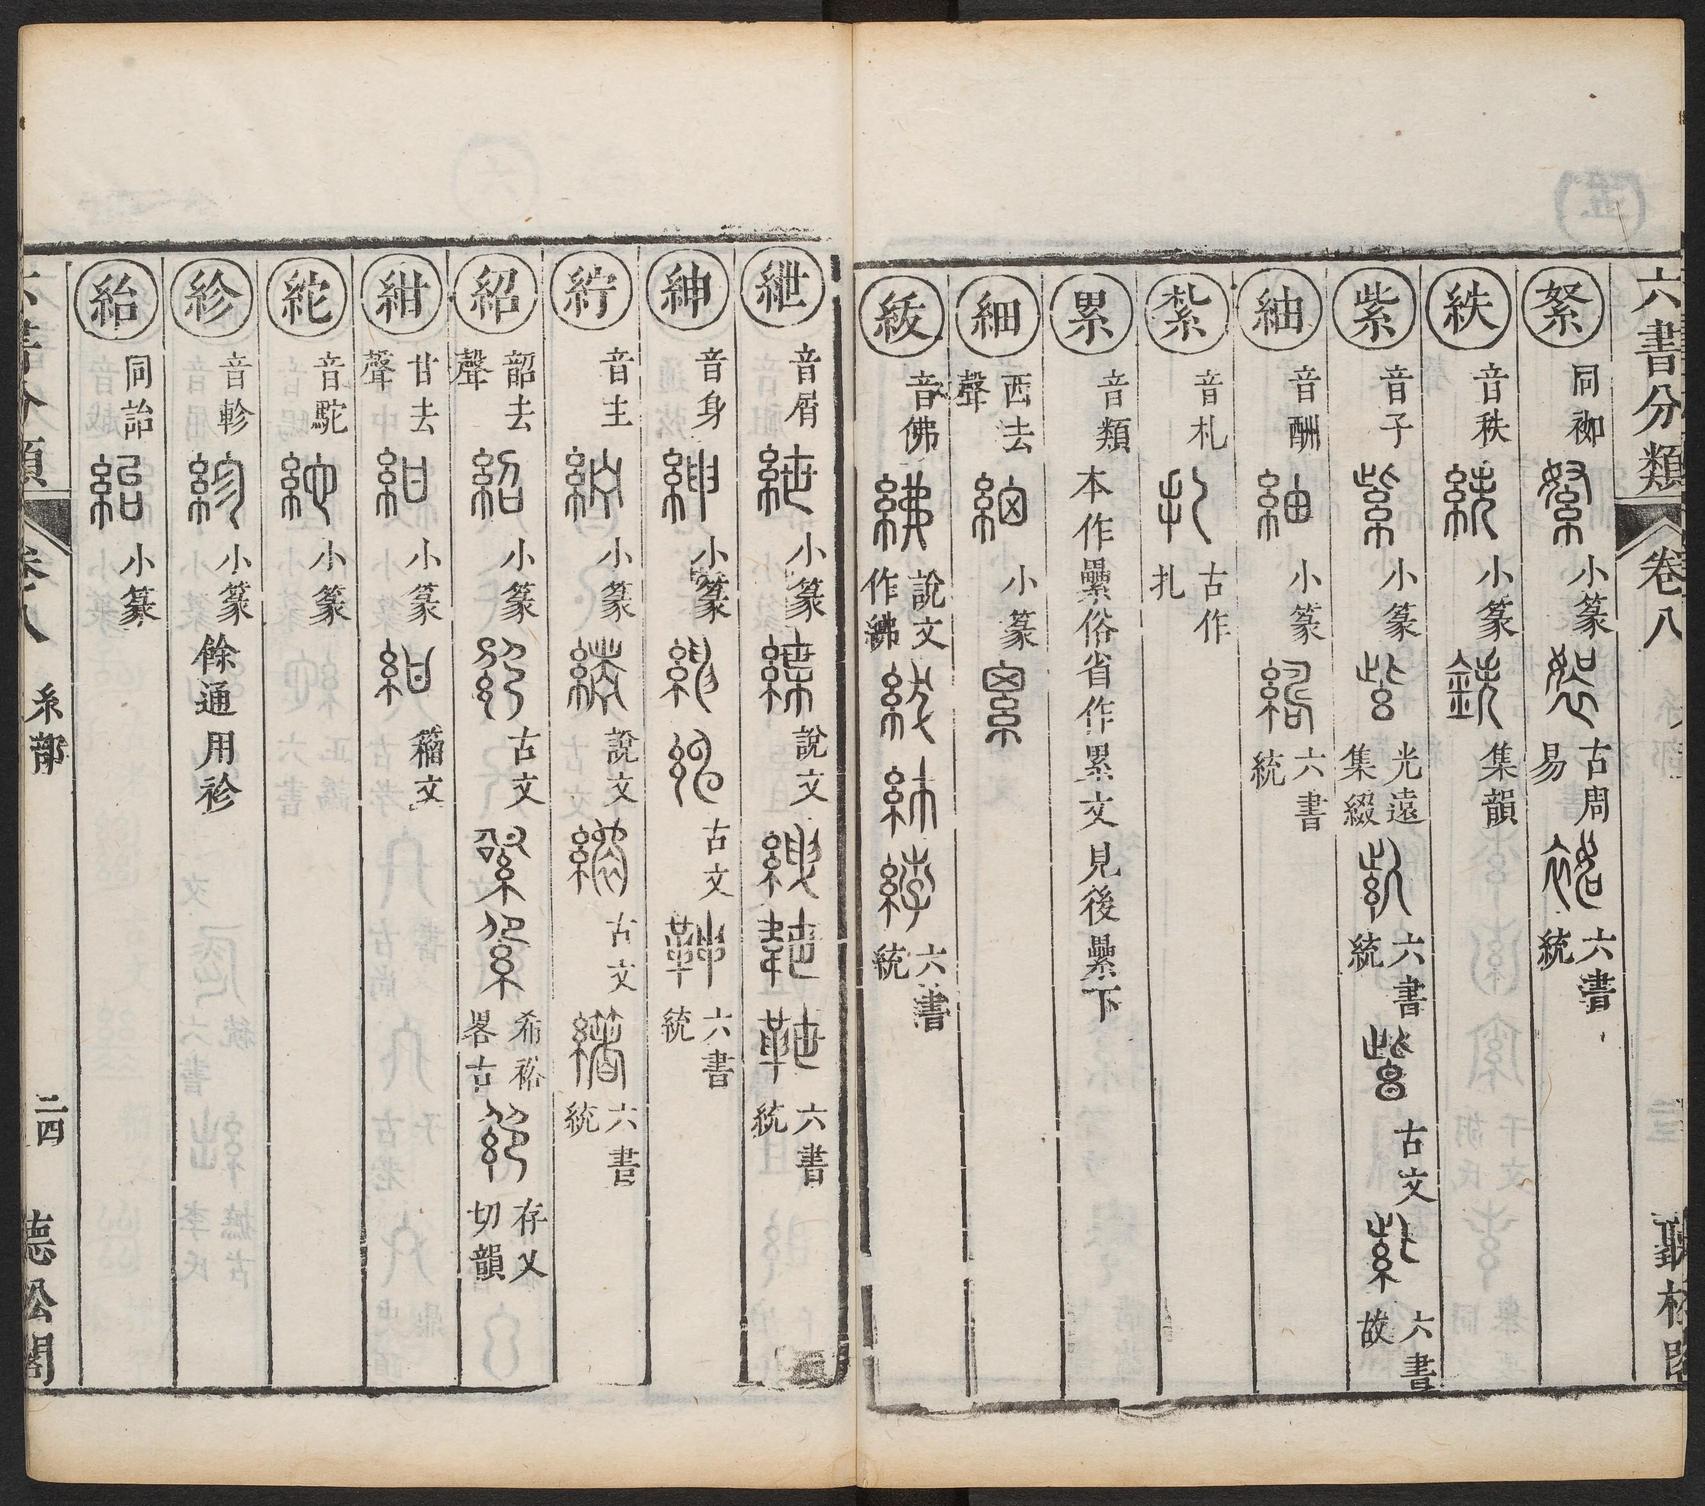 六書分類 卷八 聽松閣
絮 同袽 小篆 古周易 六書統
紩 音秩 小篆 集韻
紫 音子 小篆 光遠集綴 六書統 古文 六書故
紬 音酬 小篆 六書統
紮 音札 古作扎
累 音類 本作纍俗省作累文見後纍下
細 西去聲 小篆
紱 音佛 說文作紼 六書統
紲 音屑 小篆 說文 六書統
紳 音身 小篆 古文 六書統
紵 音主 小篆 說文 古文 六書統
紹 韶去聲 小篆 古文 希裕畧古 存乂切韻
紺 甘去聲 小篆 籀文
紽 音駝 小篆
紾 音軫 小篆 餘通用袗
紿 同詒 小篆
六書分類 卷八 糸部 二四 聽松閣